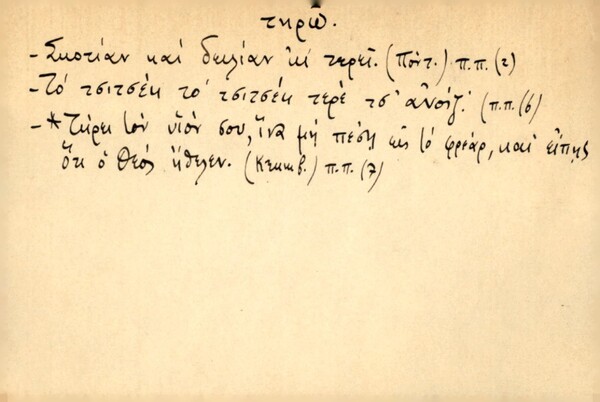 τηρῶ.
- Σκοτίαν καὶ δειλίαν 'κὶ τερεῖ. (Πόντ.) π.π. (2)
- Τὸ τσιτσέκ τὸ τσιτσέκ τερὲ τσ' ἀνοίζ'. (π.π. (6)
- * Τήρει τὸν υἱόν σου, ἵνα μὴ πέσῃ εἰς τὸ φρέαρ, καὶ εἴπῃς
ὅτι ὁ θεὸς ἤθελεν. (Κεκαυβ.) π.π. (7)